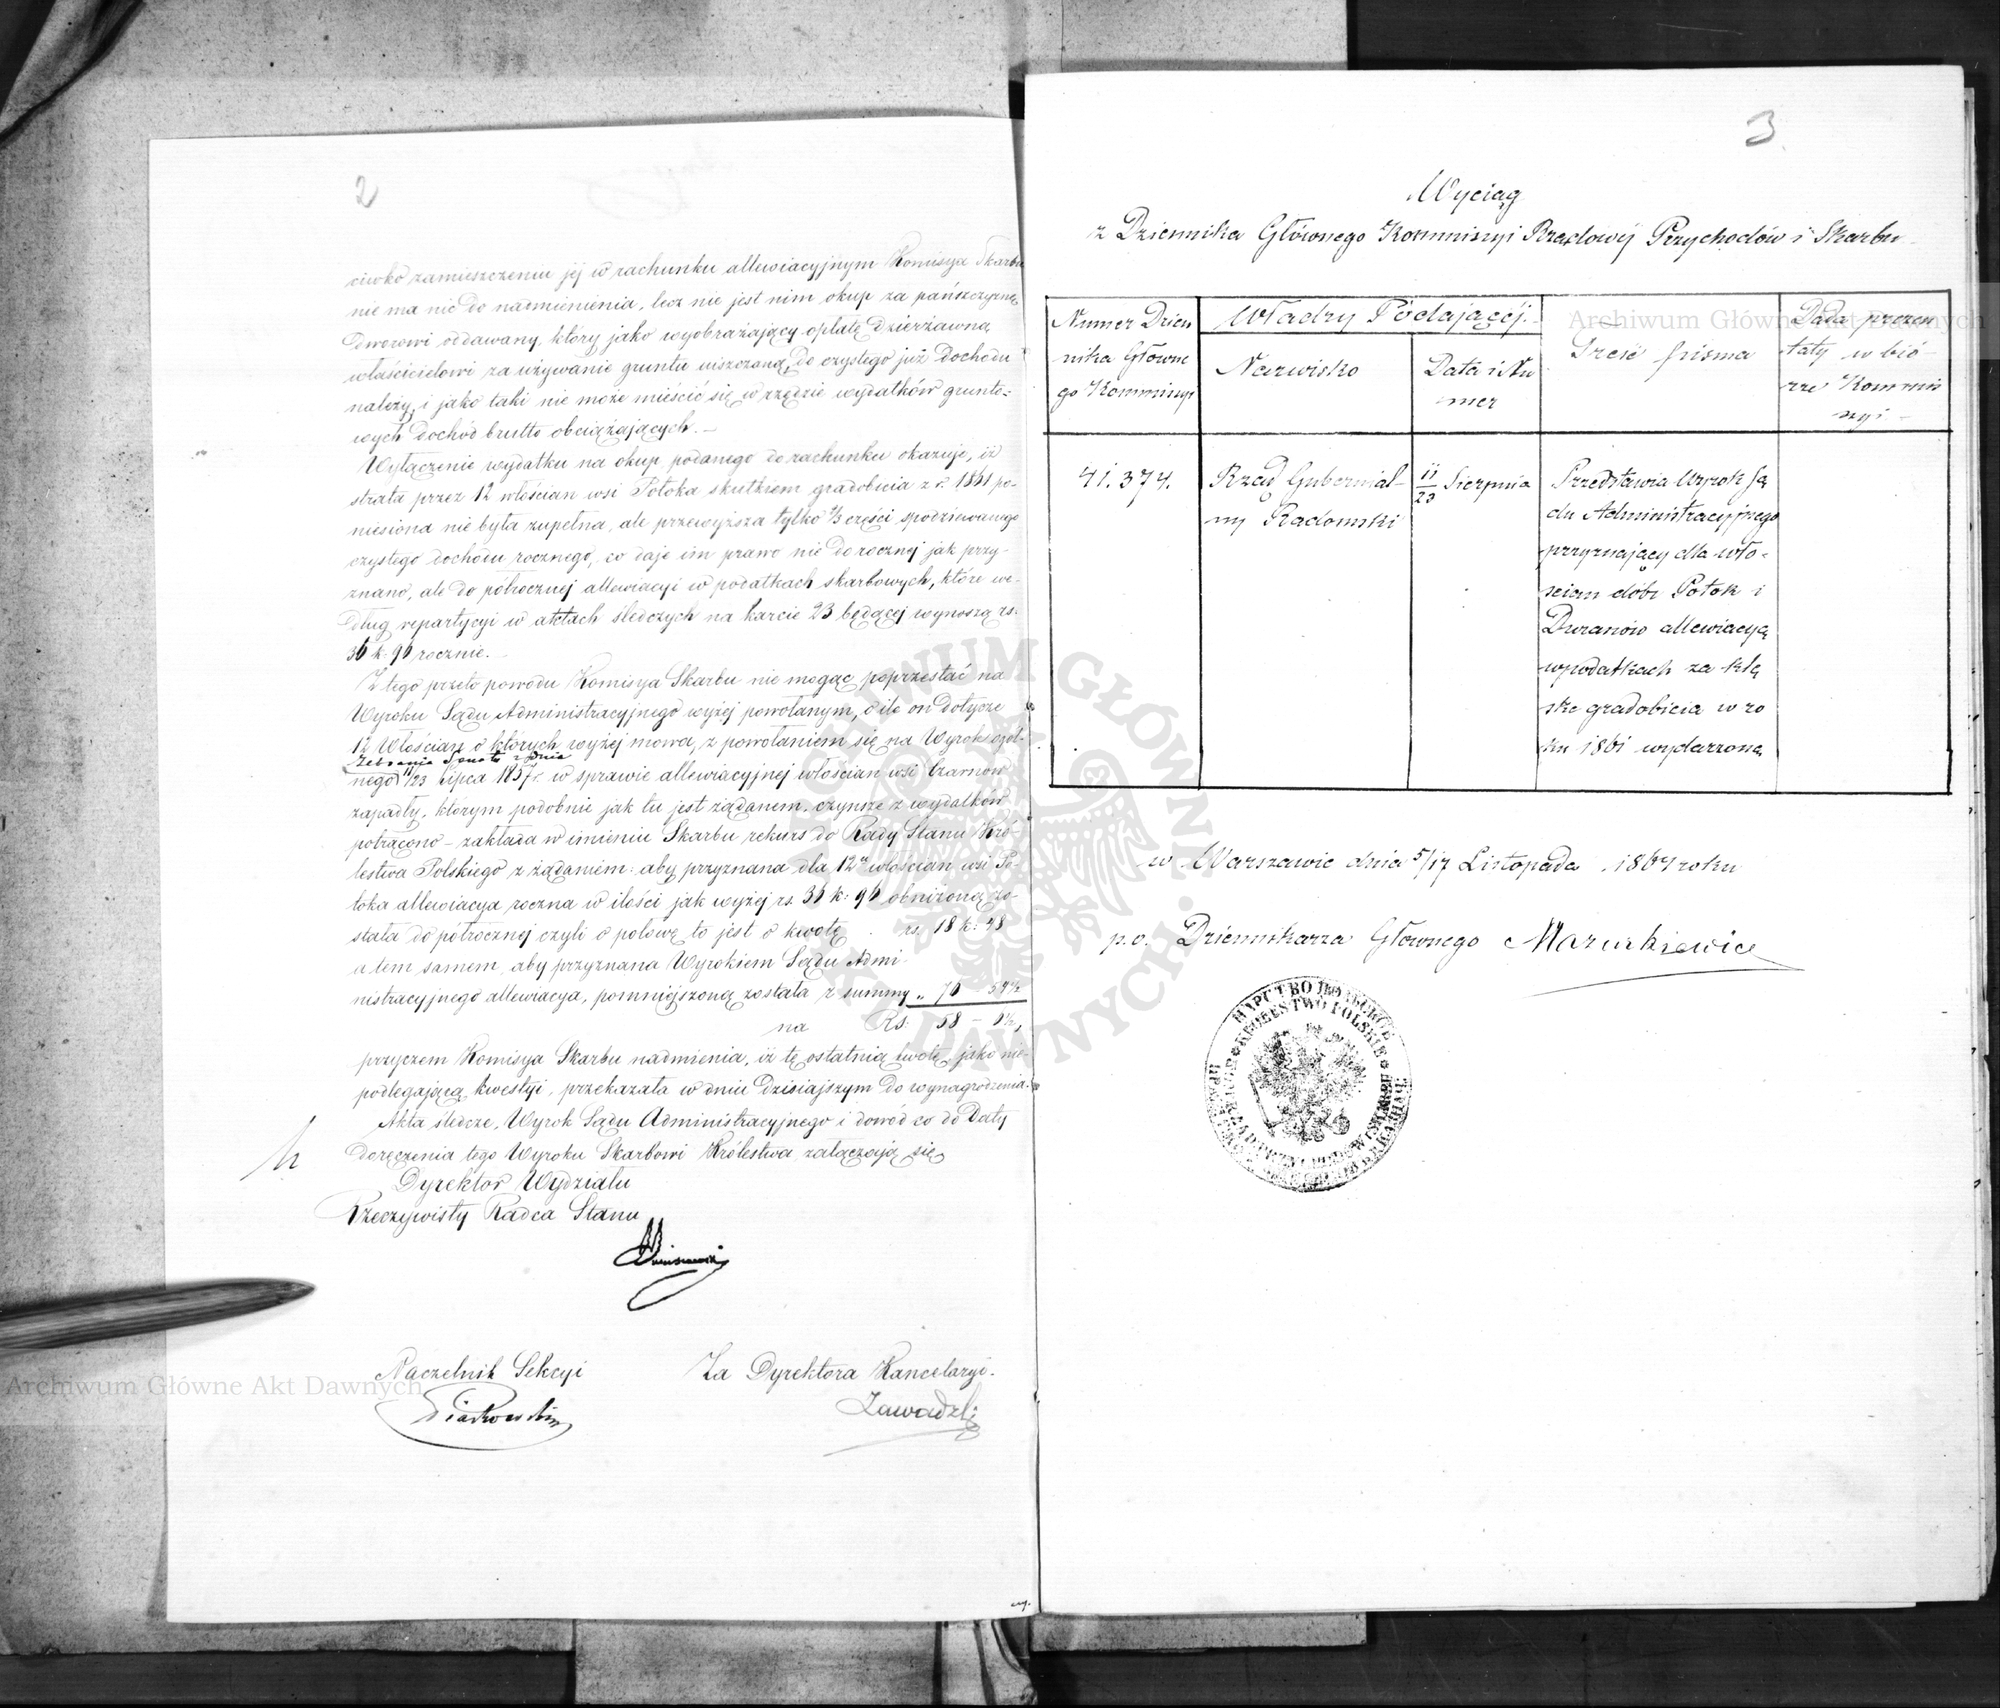 2
ciwko zamieszczeniu jej w rachunku allewiacyjnym Komisya Skarbu
nie ma nic do nadmienienia, lecz nie jest nim okup za pańszczyznę
Dworowi oddawany, który jako wyobrażający opłatę dzierżawną
właścicielowi za używanie gruntu uiszczoną, do czystego już dochodu
należy, i jako taki nie może mieścić się w rzędzie wydatków grunto-
wych dochód brutto obciążających.—
Wyłączenie wydatku na okup podanego do rachunku okazuje, iż
strata przez 12 włościan wsi Potoka skutkiem gradobicia z r. 1861 po-
niesiona nie była zupełna, ale przewyższa tylko ⅓ części spodziewanego
czystego dochodu rocznego, co daje im prawo nie do rocznej jak przy-
znano, ale do półrocznej allewiacyi w podatkach skarbowych, które we-
dług repartycyi w aktach śledczych na karcie 23 będącej wynoszą rs.
36 k: 96 rocznie.
Z tego przeto powodu Komisya Skarbu nie mogąc poprzestać na
Wyroku Sądu Administracyjnego wyżej powołanym, o ile on dotycze
12 Włościan o których wyżej mowa, z powołaniem się na Wyrok ogól-
Zebrania Senatu z dnia
nego 11/23 lipca 1857 r. w sprawie allewiacyjnej włościan wsi Czarnów
zapadły, którym podobnie jak tu jest żądanem, czynsze z wydatków
potrącono – zakłada w imieniu Skarbu rekurs do Rady Stanu Kró-
lestwa Polskiego z żądaniem: aby przyznana dla 12u włościan wsi Po-
toka allewiacya roczna w ilości jak wyżej rs. 36 k: 96 obniżoną zo-
stała do półrocznej czyli o połowę to jest o kwotę . rs. 18 k: 48
a tem samem, aby przyznana Wyrokiem Sądu Admi-
nistracyjnego allewiacya, pomniejszoną została z summy „ 76 – 54½
na Rs: 58 – 6½,
przyczem Komisya Skarbu nadmienia, iż tę ostatnią kwotę, jako nie-
podlegającą kwestyi, przekazała w dniu dzisiajszym do wynagrodzenia.
Akta śledcze, Wyrok Sądu Administracyjnego i dowód co do Daty
doręczenia tego Wyroku Skarbowi Królestwa załączają się
Dyrektor Wydziału
Rzeczywisty Radca Stanu
Naczelnik Sekcyi
Piotrowski
Za Dyrektora Kancelaryi.
Zawadzki
3
Wyciąg
z Dziennika Głównego Kommissyi Rządowéj Przychodów i Skarbu
Numer Dzien
nika Główne
go Kommissyi
Władzy Podającéj
Nazwisko
Data i Nu
mer
Treść pisma
Data prezen
taty w bió-
rze Kommis
syi –
41.374.
Rząd Gubernial-
ny Radomski
11/23 Sierpnia
Przedstawia Wyrok Są
du Administracyjnego
przyznający dla wło-
ścian dóbr Potok i
Duranów allewiacyą
w podatkach za klę
skę gradobicia w ro
ku 1861 wydarzoną
w Warszawie dnia 5/17 Listopada 1864 roku
p.o. Dziennikarza Głównego Mazurkiewicz
KRÓLESTWO POLSKIE
Archiwum Główne Akt Dawnych
Archiwum Główne Akt Dawnych
ARCHIWUM GŁÓWNE AKT DAWNYCH